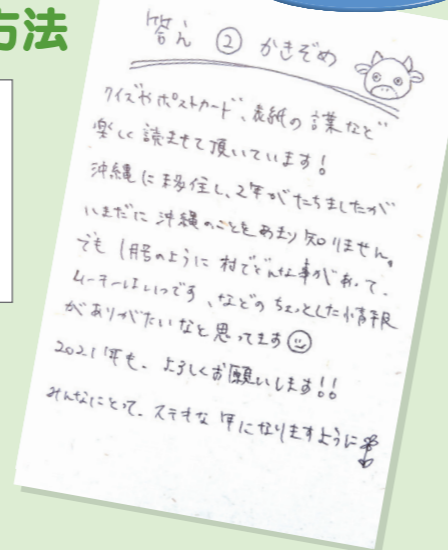 方法
答え ② かきぞめ
クイズやポストカード、表紙の言葉など
楽しく読ませて頂いています!
沖縄に移住し、2年がたちましたが
いまだに沖縄のことをあまり知りません。
でも 1月号のように 村でどんな事があって、
ムーチーはいつです、などの ちょっとした情報
がありがたいなと思ってます
2021年も、よろしくお願いします!!
みんなにとって、ステキな年になりますように